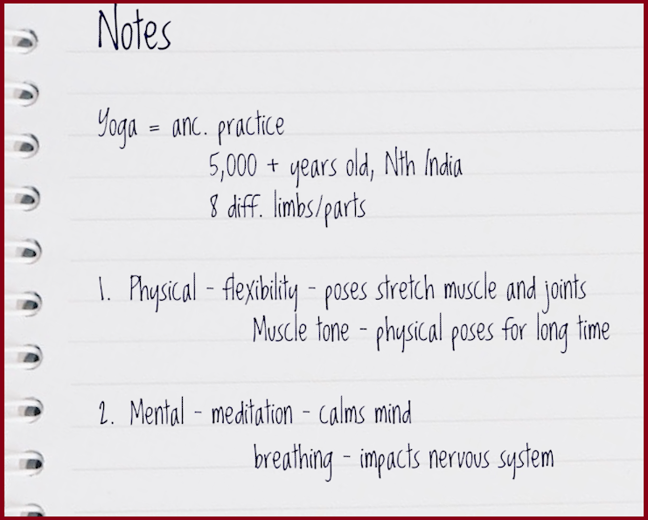 Notes
Yoga = anc. practice
5,000 + years old, Nth India
8 diff. limbs/parts
1. Physical - flexibility - poses stretch muscle and joints
Muscle tone - physical poses for long time
2. Mental - meditation - calms mind
breathing - impacts nervous system